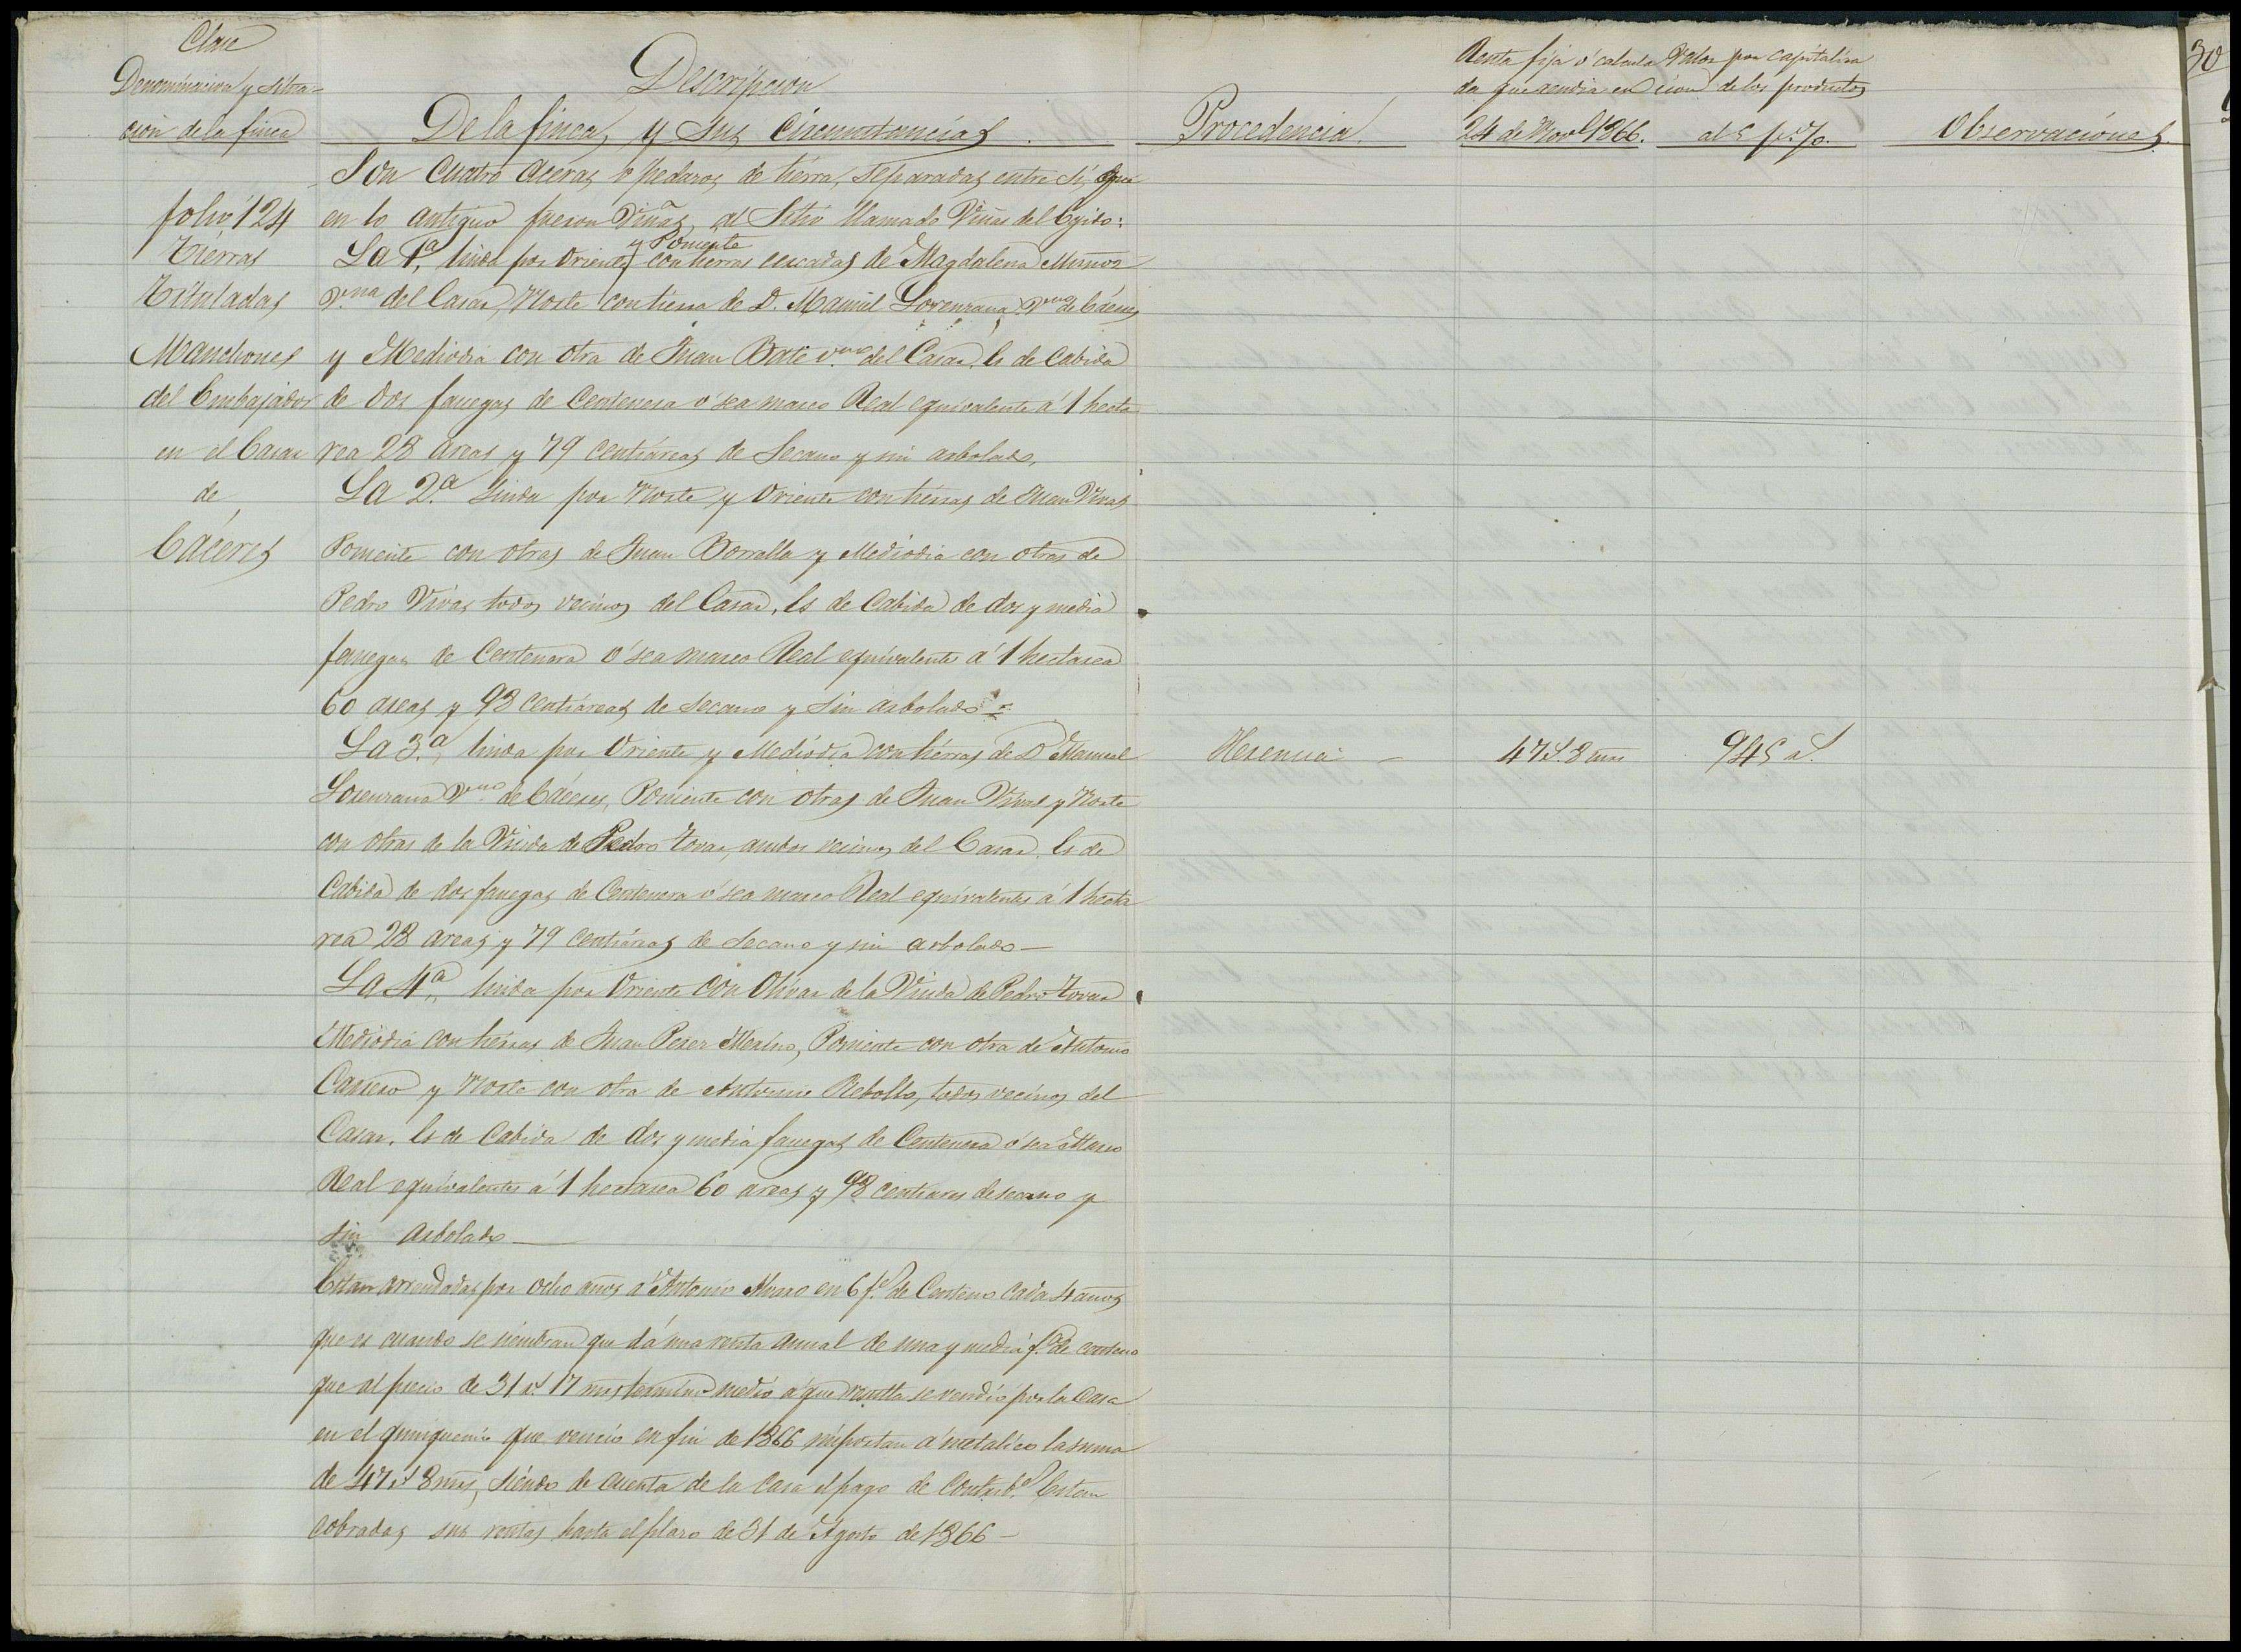 Clase
Denominacion y situa-
cion de la finca
Descripcion
De la finca, y sus circunstancias
Procedencia
Renta fija ó calcula
da que rendia en
24 de Novbe 1866.
Valor por capitaliza
cion de los productos
al 5 p.%.
Observaciones.
30
folio 124
Tierras
Tituladas
Manchones
del Embajador
en el Casar
de
Cáceres
Son cuatro aceras ó pedazos de tierra, separadas entre sí, que
en lo antiguo fueron Viñas, al Sitio llamado Viñas del Egido:
y Poniente
La 1.ª linda por Oriente con tierras cercadas de Magdalena Muñoz
v.na del Casar, Norte con tierra de D. Manuel Lorenzana V.no de Cáceres
y Mediodia con otra de Juan v.no del Casar. Es de Cabida
de dos fanegas de Centenera ó sea marco Real equivalente á 1 hecta
rea 28 areas y 79 centiáreas de Secano y sin arbolado.
La 2.ª linda por Norte y Oriente con tierras de Juan Vivas
Poniente con otras de Juan Borralla y Mediodia con otras de
Pedro Vivas todos vecinos del Casar. Es de Cabida de dos y media
fanegas de Centenera ó sea marco Real equivalente á 1 hectarea
60 areas y 98 centiáreas de secano y sin arbolado
La 3.ª linda por Oriente y Mediodia con tierras de D. Manuel
Lorenzana V.no de Cáceres, Poniente con otras de Juan Vivas y Norte
con otras de la Viuda de Pedro Tovar, ambos vecinos del Casar. Es de
Cabida de dos fanegas de Centenera ó sea marco Real equivalentes á 1 hecta
rea 28 areas y 79 centiáreas de secano y sin arbolado —
Herencia —
47 rs. 8 mrs
945 rs.
La 4.ª linda por Oriente con Olivar de la Viuda de Pedro Tovar
Mediodia con tierras de Juan Perez Merino, Poniente con otra de Antonio
Carrero y Norte con otra de Antonio Rebollo, todos vecinos del
Casar. Es de Cabida de dos y media fanegas de Centenera ó sea Marco
Real equivalentes á 1 hectarea 60 areas y 98 centiares de secano y
sin arbolado —
Estan arrendadas por ocho años á Antonio Alvaro en 6 f.s de Centeno cada 4 años
que es cuando se siembran que dá una renta anual de una y media f.a de centeno
que al precio de 31 rs. 17 mrs termino medio á que resulta se vendió por la Casa
en el quinquenio que venció en fin de 1866 importan á metalico la suma
de 47 rs 8 mrs, siendo de cuenta de la casa el pago de Contrib.s Estan
cobradas sus rentas hasta el plazo de 31 de Agosto de 1866 —